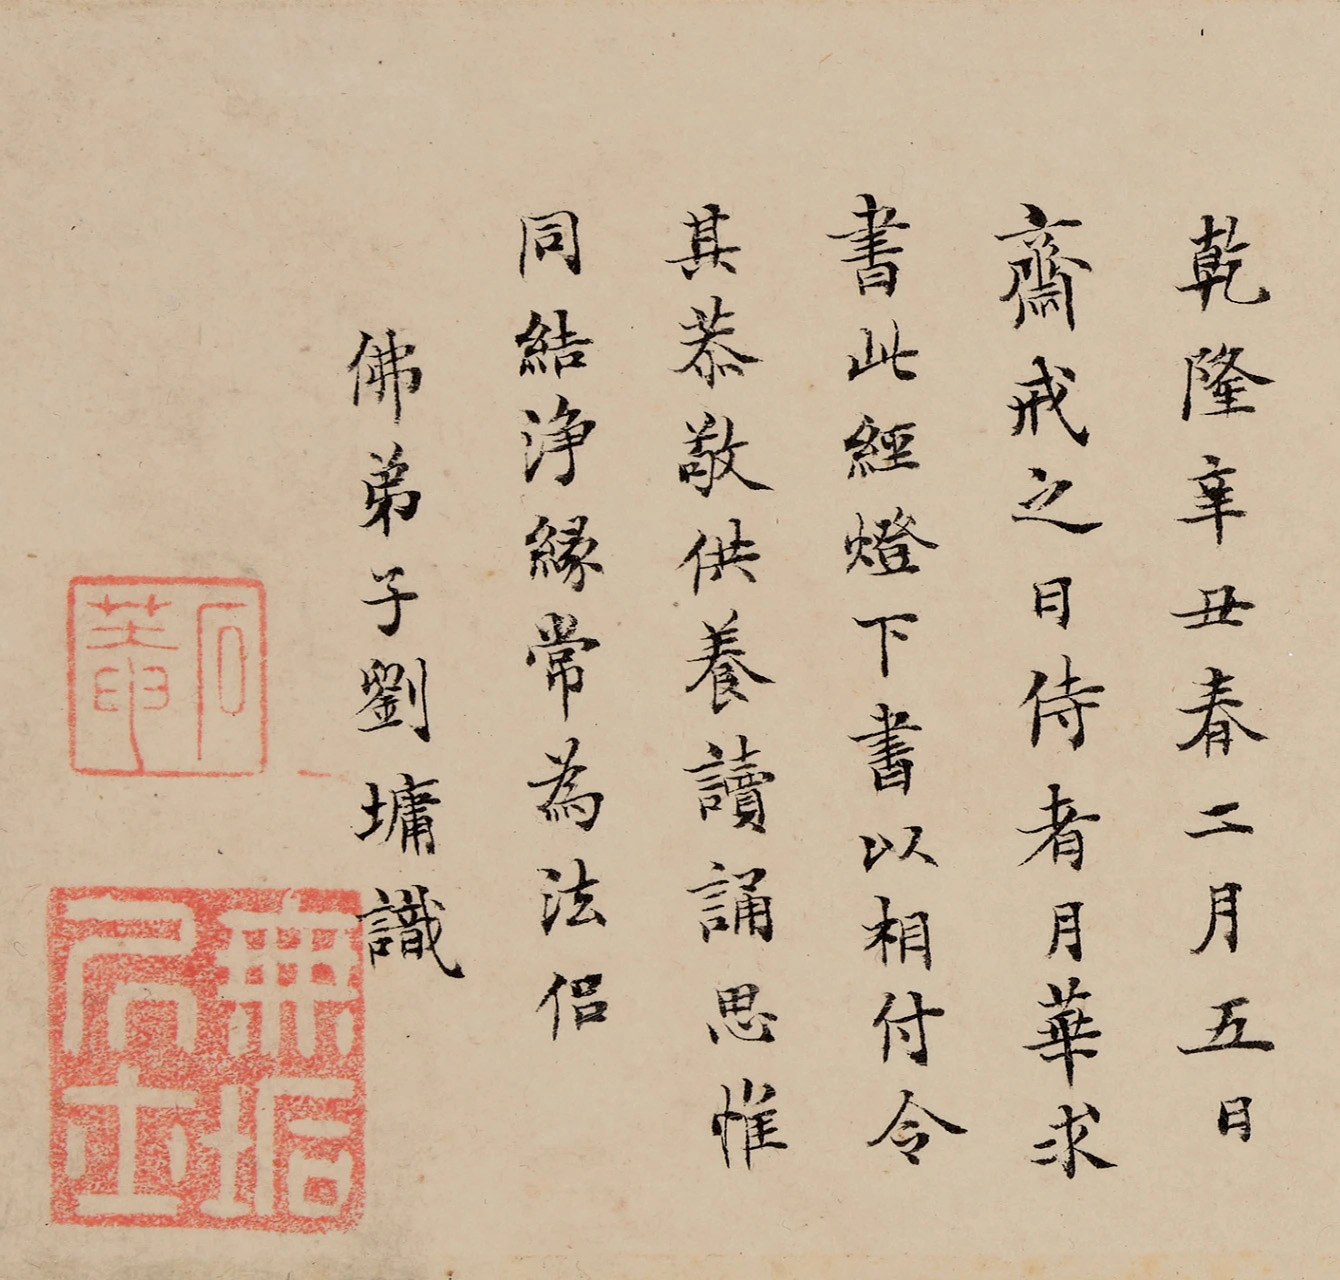 乾隆辛丑春二月五日
齋戒之日侍者月華求
書此經燈下書以相付令
其恭敬供養讀誦思惟
同結浄緣常為法侶
佛弟子劉墉識
石菴
無垢居士